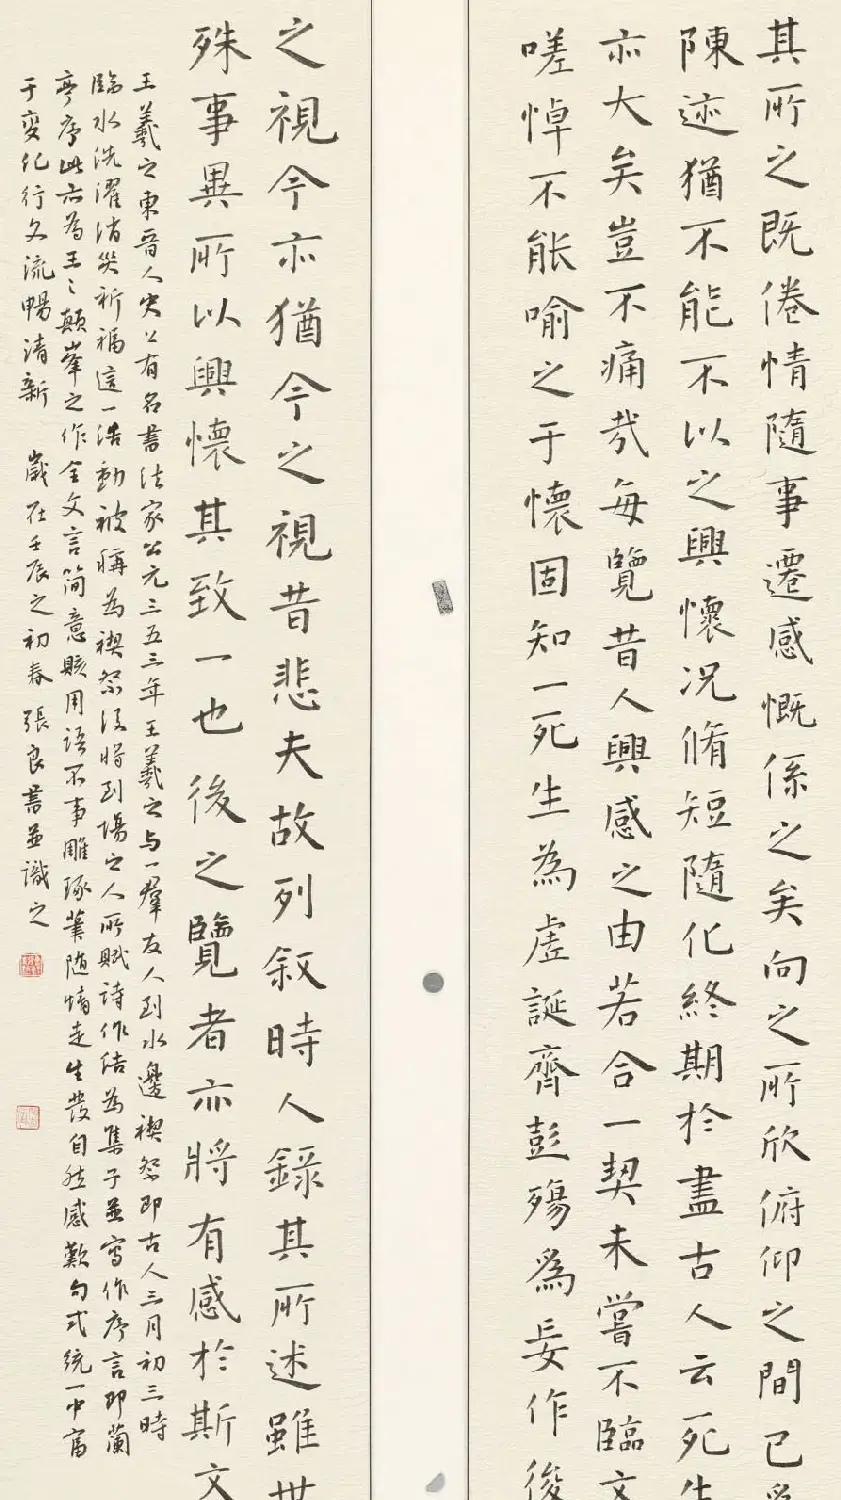 其所之既倦情隨事遷感慨係之矣向之所欣俯仰之間已爲
陳迹猶不能不以之興懷况脩短隨化終期於盡古人云死生
亦大矣豈不痛哉每覽昔人興感之由若合一契未嘗不臨文
嗟悼不能喻之于懷固知一死生為虛誕齊彭殤爲妄作後
之視今亦猶今之視昔悲夫故列敘時人錄其所述雖世
殊事異所以興懷其致一也後之覽者亦將有感於斯文
王羲之東晉人史上有名書法家公元三五三年王羲之与一羣友人到水邊禊祭即古人三月初三時
臨水洗濯消災祈福這一活動被稱為禊祭後將到場之人所賦詩作结為集子並寫作序言即蘭
亭序此亦為王之顛峯之作全文言简意賅用語不事雕琢筆随情走生發自然感歎句式統一中富
于变化行文流暢清新 歲在壬辰之初春張良書並識之